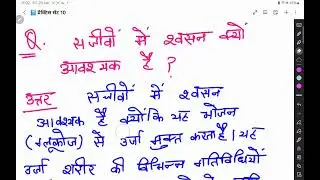 प्रैक्टिस सेट 10
Q. सजीवों में श्वसन क्यों
आवश्यक है ?
उत्तर सजीवों में श्वसन
आवश्यक है क्योंकि यह भोजन
(ग्लूकोज) से उर्जा मुक्त करता है। यह
उर्जा शरीर की विभिन्न गतिविधियों